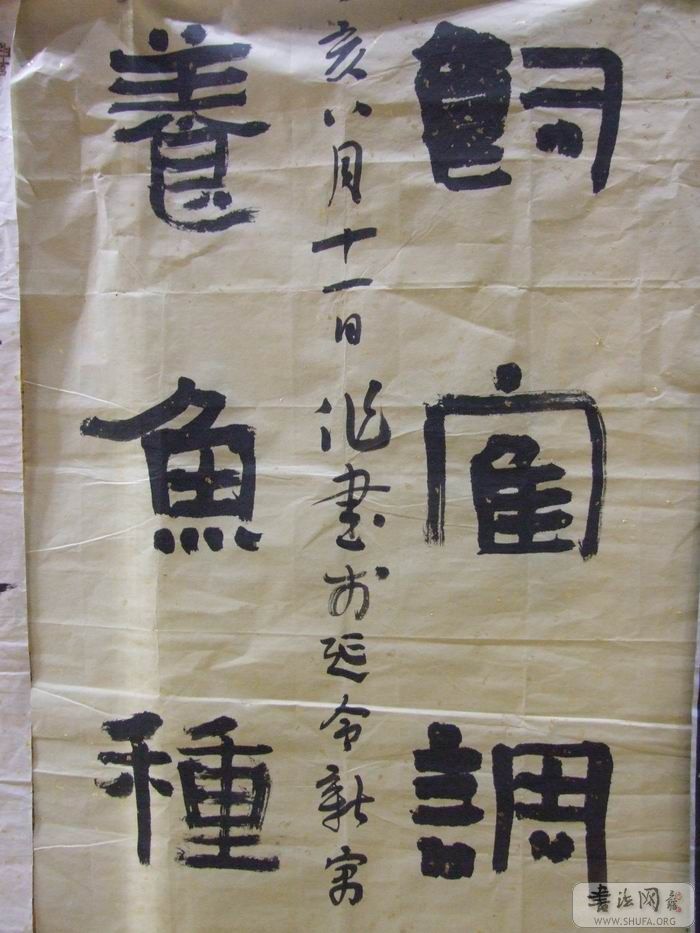 飼寉調
亥八月十一日作書於延令新寓
養魚種
書法网
WWW.SHUFA.ORG